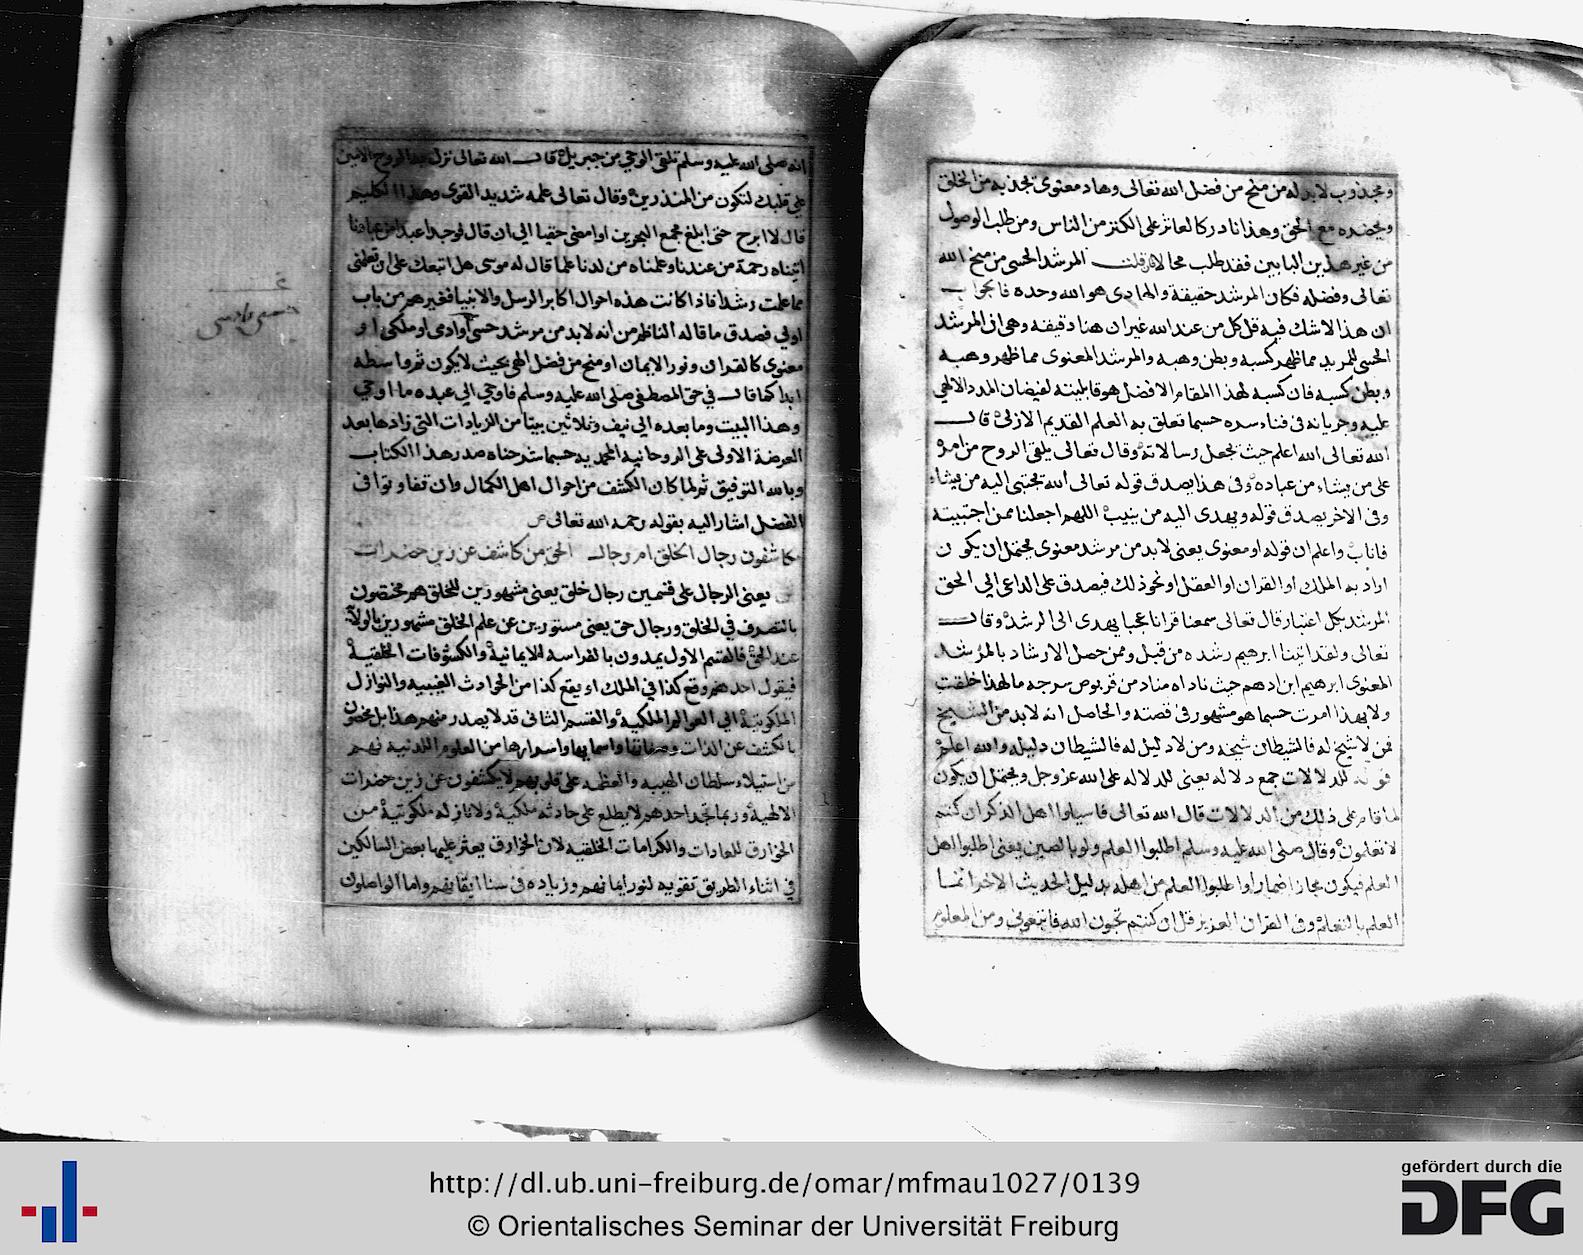 ومجذوب لابد له من منح من فضل الله تعالى وهاد معنوى تجذبه من الخلق
وتحضره مع الحق وهذا نادر كالعاثر على الكنز من الناس ومن طلب الوصول
من غير هذين البابين فقد طلب محالا فان قلت المرشد الحسى من منح الله
تعالى وفضله فكان المرشد حقيقة والهادى هو الله وحده فالجواب
ان هذا لاشك فيه قل كل من عند الله غير ان هنا دقيقة وهى ان المرشد
الحسى للمريد مما ظهر كسبه وبطن وهبه والمرشد المعنوى مما ظهر وهبه
وبطن كسبه فان كسبه لهذا المقام الافضل هو قابليته لفيضان المدد الالهي
عليه وجريانه فى فناء سره حسبما تعلق به العلم القديم الازلى قال
الله تعالى الله اعلم حيث يجعل رسالاته وقال تعالى يلقى الروح من امره
على من يشاء من عباده وفى هذا يصدق قوله تعالى الله يجتبى اليه من يشاء
وفى الاخر يصدق قوله ويهدى اليه من ينيب اللهم اجعلنا ممن اجتبيته
فاناب واعلم ان قوله او معنوى يعنى لابد من مرشد معنوى يحتمل ان يكون
اراد به الملك او القران او العقل او نحو ذلك فيصدق على الداعى الى الحق
المرشد بكل اعتبار قال تعالى سمعنا قرانا عجبا يهدى الى الرشد وقال
تعالى ولقد اتينا ابرهيم رشده من قبل وممن حصل الارشاد بالمرشد
المعنوى ابرهيم ابن ادهم حيث ناداه مناد من قربوص سرجه ما لهذا خلقت
ولا بهذا امرت حسبما هو مشهور فى قصته والحاصل انه لابد من الشيخ
فمن لا شيخ له فالشيطان شيخه ومن لا دليل له فالشيطان دليله والله اعلم
قوله للدلالات جمع دلالة يعنى للدلالة على الله عز وجل ويحتمل ان يكون
لما قام على ذلك من الدلالات قال الله تعالى فاسيلوا اهل الذكر ان كنتم
لا تعلمون وقال صلى الله عليه وسلم اطلبوا العلم ولو بالصين يعنى اطلبوا اهل
العلم فيكون مجاز اضمار او اطلبوا العلم من اهله بدليل الحديث الاخر انما
العلم بالتعلم وفى القران العزيز قل ان كنتم تحبون الله فاتبعونى ومن المعلوم
انه صلى الله عليه وسلم تلقى الوحي من جبريل قال الله تعالى نزل به الروح الامين
على قلبك لتكون من المنذرين وقال تعالى علمه شديد القوى وهذا الكليم
قال لا ابرح حتى ابلغ مجمع البحرين او امضى حقبا الى ان قال فوجدا عبدا من عبادنا
اتيناه رحمة من عندنا وعلمناه من لدنا علما قال له موسى هل اتبعك على ان تعلمنى
مما علمت رشدا فاذا كانت هذه احوال اكابر الرسل والانبيا فغيرهم من باب
اولى فصدق ما قاله الناظم من انه لابد من مرشد حسى آوادمى او ملكى او
معنوى كالقران ونور الايمان او منح من فضل الهى بحيث لا يكون ثم واسطه
ابدا كما قال فى حق المصطفى صلى الله عليه وسلم فاوحى الى عبده ما اوحى
وهذا البيت وما بعده الى نيف وثلاثين بيتا من الزيادات التى زادها بعد
العرضة الاولى على الروحانية المحمديه حسبما شرحناه صدر هذا الكتاب
وبالله التوفيق ثم لما كان الكشف من احوال اهل الكمال وان تفاوتوا فى
الفضل اشار اليه بقوله رحمه الله تعالى ص
مكاشفون رجال الخلق ام رجال الحق من كاشف عن زين حضرات
يعنى الرجال على قسمين رجال خلق يعنى مشهورين للخلق هم مختصون
بالتصرف فى الخلق ورجال حق يعنى مستورين عن علم الخلق مشهورين بالولاء
عند الحق فالقسم الاول يمدون بالفراسه الايمانية والكشوفات الخلقية
فيقول احدهم وقع كذا فى الملك او يقع كذا من الحوادث الغيبيه والنوازل
الملكوتية الى العوالم الملكية والقسم الثانى قد لا يصدر منهم هذا بل يخصون
بالكشف عن الذات وصفاتها واسمايها واسرارها من العلوم اللدنية فهم
من استيلاء سلطان الهيبه والعظمه على قلوبهم لا يكشفون عن زين حضرات
الالهية وربما تجد احدهم لا يطلع على حادثه ملكية ولا نازله ملكوتية من
الخوارق للعادات والكرامات الخلقيه لان الخوارق يعثر عليها بعض السالكين
فى اثناء الطريق تقويه لنور ايمانهم وزياده فى سنا ايقانهم واما الواصلون
http://dl.ub.uni-freiburg.de/omar/mfmau1027/0139
© Orientalisches Seminar der Universität Freiburg
gefördert durch die
DFG